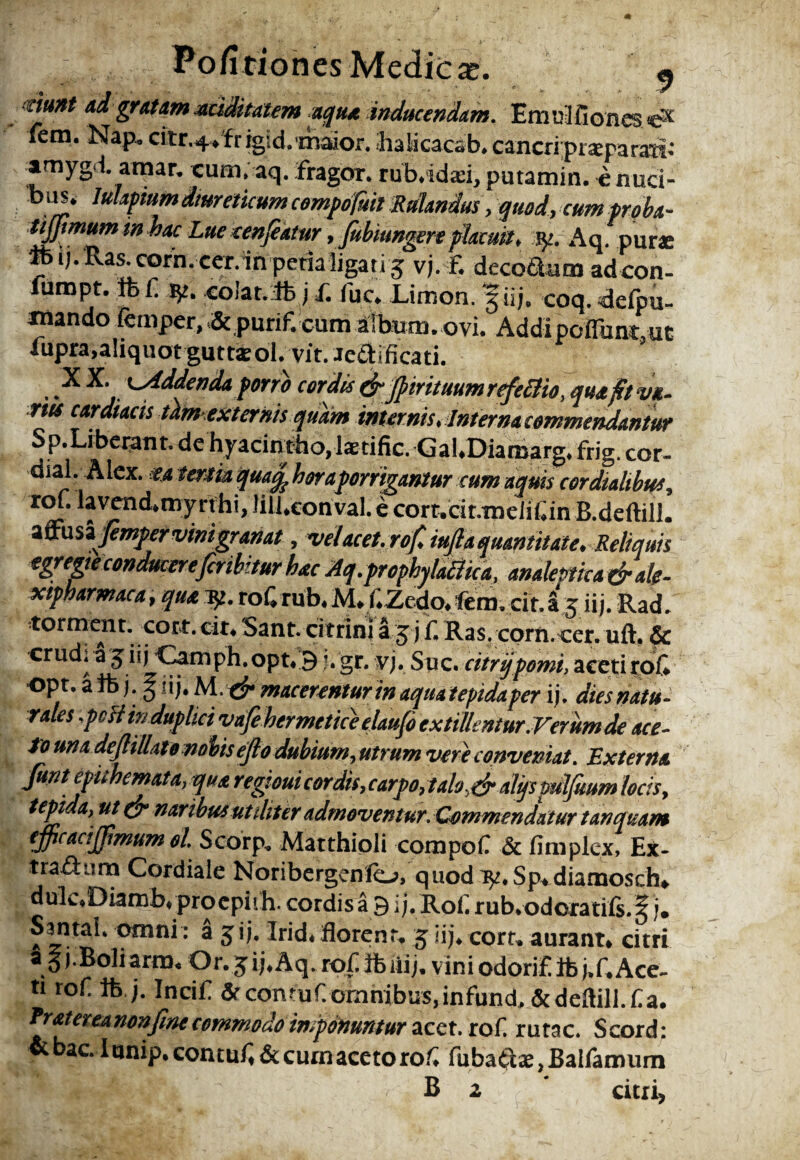 Poſitiones Medicæ. 9
ciunt ad gratam aciditatem aquæ inducendam. Emulſiones ex
ſem. Nap. citr. 4. frigid. maior. halicacab. cancri præparati:
amygd. amar. cum. aq. fragor. rub. idæi, putamin. è nuci-
bus. Iulapium diureticum compoſuit Rulandus, quod, cum proba-
tiſſimum in hac Lue cenſeatur, ſubiungere placuit. ℞. Aq. puræ
℔ ij. Ras. corn. cer. in petia ligati ʒ vj. f. decoctum ad con-
ſumpt. ℔ ſ. ℞. colat. ℔ j ſ. ſuc. Limon. ℥ iij. coq. deſpu-
mando ſemper, & purif. cum album. ovi. Addi poſſunt, ut
ſupra, aliquot guttæ ol. vit. rectificati.
XX. Addenda porrò cordis & ſpirituum refectio, quæ fit va-
riis cardiacis tàm externis quàm internis. Interna commendantur
Sp. Liberant. de hyacintho, lætific. Gal. Diamarg. frig. cor-
dial. Alex. ea tertia quaq; hora porrigantur cum aquis cordialibus,
roſ. lavend. myrthi, lill. conval. è cort. cit. meliſ. in B. deſtill.
affusâ ſemper vini granat, vel acet. roſ. iuſta quantitate. Reliquis
egregiè conducere ſcribitur hæc Aq. prophylactica, analeptica & ale-
xipharmaca, quæ ℞. roſ. rub. M. ſ. Zedo. ſem. cit. ā ʒ iij. Rad.
torment. cort. cit. Sant. citrini ā ʒ j ſ. Ras. corn. cer. uſt. &
crudi ā ʒ iij Camph. opt. ℈ j. gr. vj. Suc. citrij pomi, aceti roſ.
opt. ā ℔ j. ℥ iij. M. & macerentur in aqua tepida per ij. dies natu-
rales, poſt in duplici vaſe hermeticè clauſo extillentur. Verùm de ace-
to una deſtillato nobis eſto dubium, utrum verè conveniat. Externa
ſunt epithemata, quæ regioni cordis, carpo, talo, & alijs pulſuum locis,
tepida, ut & naribus utiliter admoventur. Commendatur tanquam
efficaciſſimum ol. Scorp. Matthioli compoſ. & ſimplex, Ex-
tractum Cordiale Noribergenſe, quod ℞. Sp. diamosch.
dulc. Diamb. pro epith. cordis ā ℈ ij. Roſ. rub. odoratiſs. ℥ j.
Santal. omni: ā ʒ ij. Irid. florent. ʒ iij. cort. aurant. citri
ā ℥ j. Boli arm. Or. ʒ ij. Aq. roſ. ℔ iiij. vini odorif. ℔ j. ſ. Ace-
ti roſ. ℔ j. Inciſ. & contuſ. omnibus, infund. & deſtill. ſ. a.
Præterea non ſine commodo imponuntur acet. roſ. rutac. Scord:
& bac. Iunip. contuſ. & cum aceto roſ. ſubactæ, Balſamum
B 2 citri,